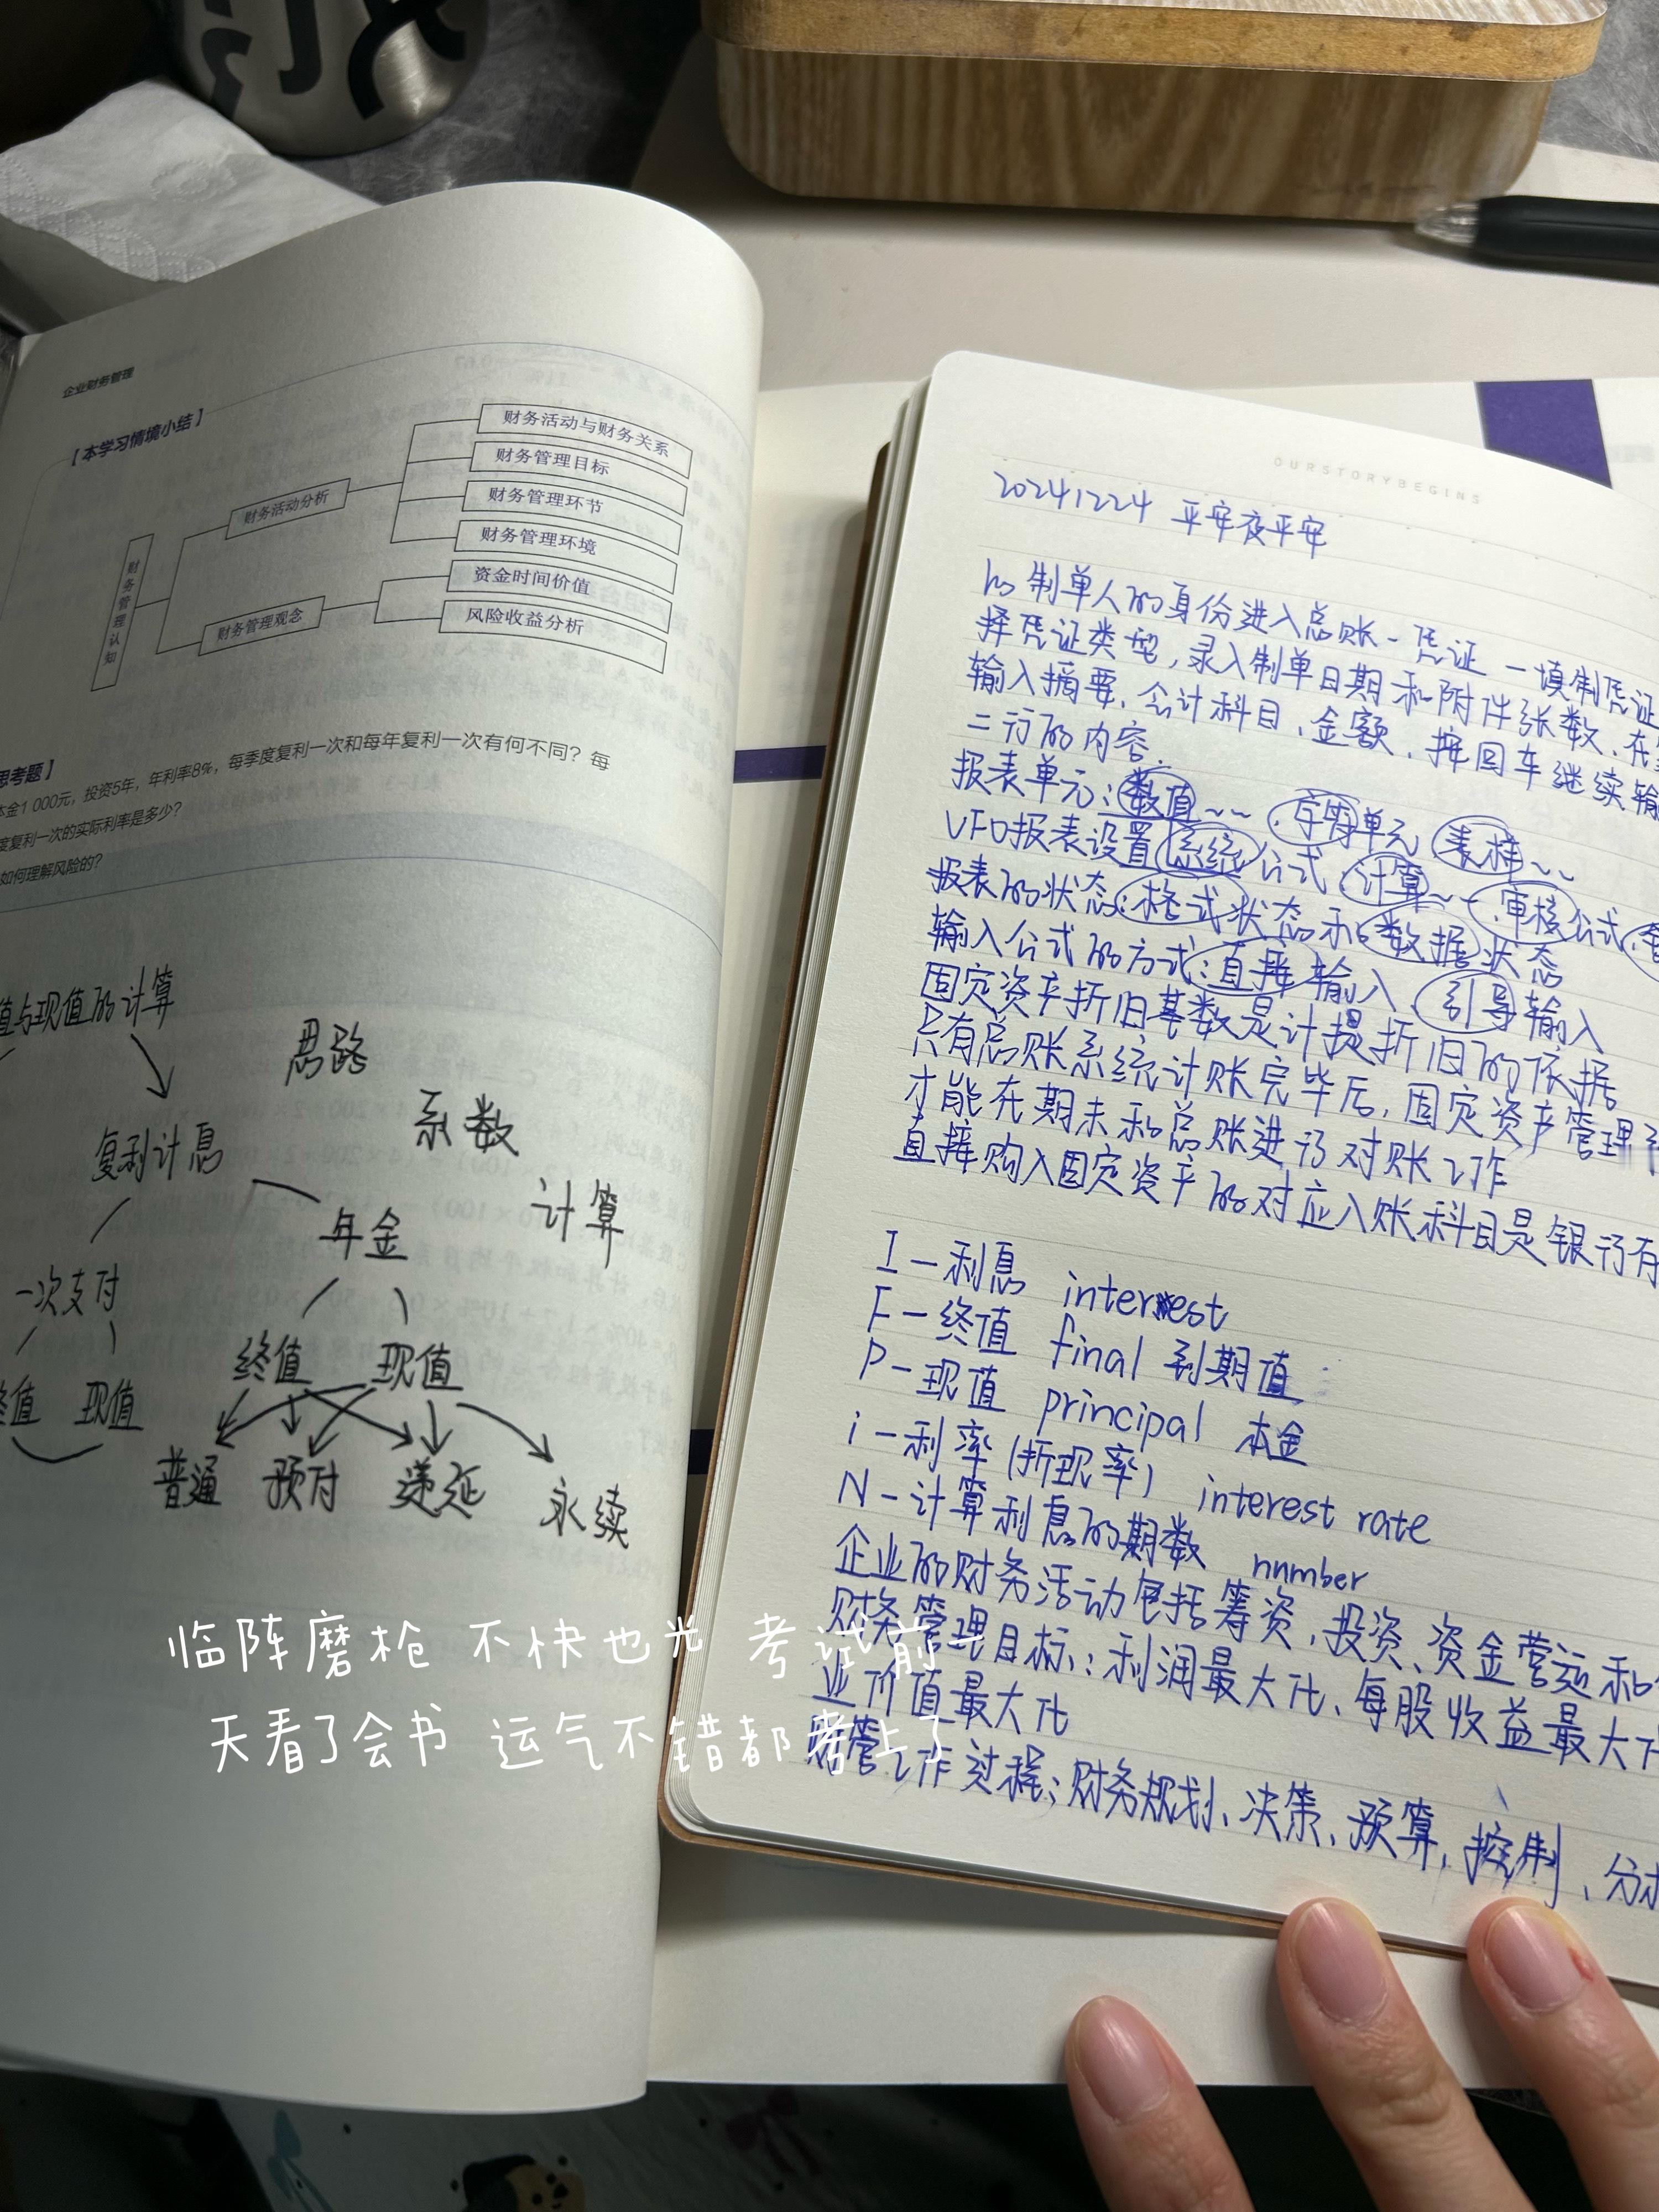 企业财务管理
【本学习情境小结】
财务管理认知
财务活动分析
财务活动与财务关系
财务管理目标
财务管理环节
财务管理环境
财务管理观念
资金时间价值
风险收益分析
思考题】
本金1 000元，投资5年，年利率8%，每季度复利一次和每年复利一次有何不同？每
度复利一次的实际利率是多少？
如何理解风险的？
值与现值的计算
思路
系数
计算
复利计息
年金
一次支付
终值 现值
终值 现值
普通 预付 递延 永续
OURSTORYBEGINS
20241224 平安夜平安
以制单人的身份进入总账-凭证-填制凭证
择凭证类型,录入制单日期和附件张数,在
输入摘要、会计科目、金额,按回车继续输
二行的内容.
报表单元:数值~~ 、字符单元 表样~~
UFO报表设置 系统公式 计算~~ 、审核公式、
报表的状态:格式状态和数据状态
输入公式的方式:直接输入、引导输入
固定资产折旧基数是计提折旧的依据
只有总账系统计账完毕后,固定资产管理
才能在期末和总账进行对账工作
直接购入固定资产的对应入账科目是银行存
I-利息 interest
F-终值 final 到期值
P-现值 principal 本金
i-利率(折现率) interest rate
N-计算利息的期数 nnmber
企业的财务活动包括筹资,投资、资金营运和
财务管理目标:利润最大化、每股收益最大化
业价值最大化
财管工作过程:财务规划、决策、预算,控制、分析
临阵磨枪 不快也光 考试前一
天看了会书 运气不错都考上了